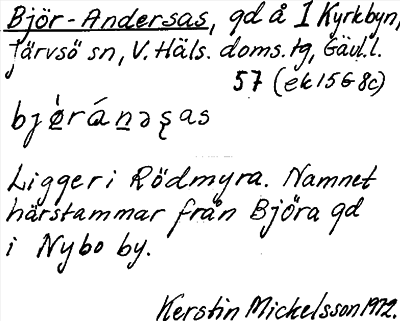 Björ-Andersas, gd å 1 Kyrkbyn,
Järvsö sn, V. Häls. doms. tg, Gävl. l.
57 (ek 15G 8c)
bjø̀ránəʂas
Ligger i Rödmyra. Namnet
härstammar från Björa gd
i Nybo by.
Kerstin Mickelsson 1972.